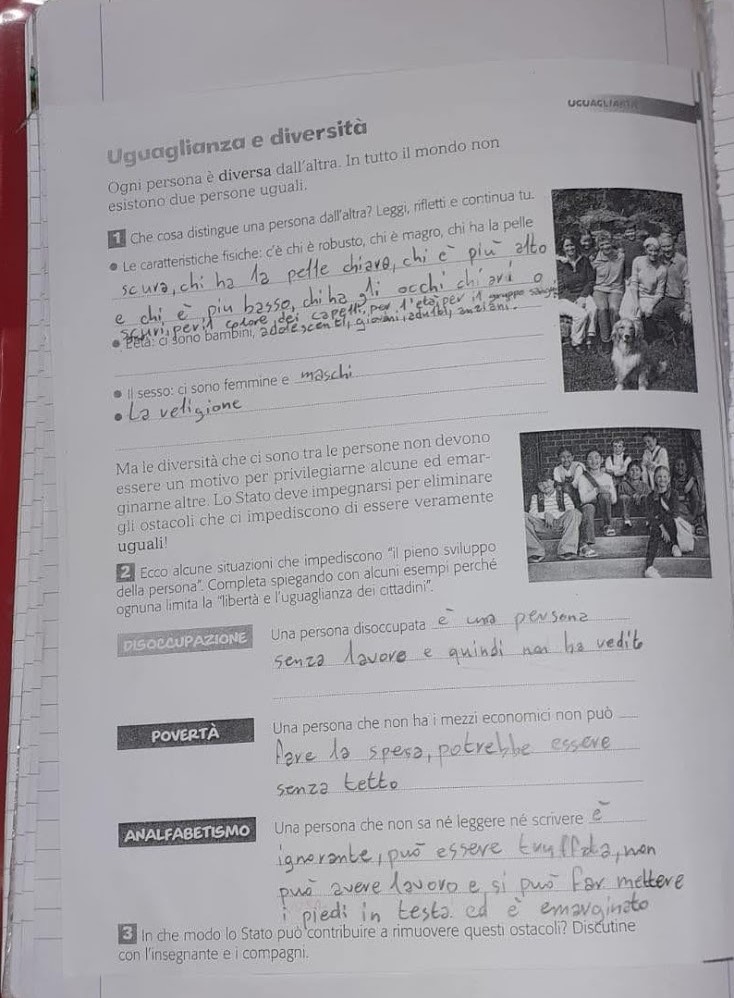 UGUAGLIANZA
Uguaglianza e diversità
Ogni persona è diversa dall'altra. In tutto il mondo non
esistono due persone uguali.
1 Che cosa distingue una persona dall'altra? Leggi, rifletti e continua tu.
• Le caratteristiche fisiche: c'è chi è robusto, chi è magro, chi ha la pelle
scura, chi ha la pelle chiara, chi è più alto
e chi è più basso, chi ha gli occhi chiari o
scuri, per il colore dei capelli, per l'età, per il gruppo sangu
• L'età: ci sono bambini, adolescenti, giovani, adulti, anziani.
• Il sesso: ci sono femmine e maschi
• La religione
Ma le diversità che ci sono tra le persone non devono
essere un motivo per privilegiarne alcune ed emar-
ginarne altre. Lo Stato deve impegnarsi per eliminare
gli ostacoli che ci impediscono di essere veramente
uguali!
2 Ecco alcune situazioni che impediscono "il pieno sviluppo
della persona". Completa spiegando con alcuni esempi perché
ognuna limita la "libertà e l'uguaglianza dei cittadini".
DISOCCUPAZIONE Una persona disoccupata è una persona
senza lavoro e quindi non ha redito
POVERTÀ Una persona che non ha i mezzi economici non può
fare la spesa, potrebbe essere
senza tetto
ANALFABETISMO Una persona che non sa né leggere né scrivere è
ignorante, può essere truffata, non
può avere lavoro e si può far mettere
i piedi in testa ed è emarginato
3 In che modo lo Stato può contribuire a rimuovere questi ostacoli? Discutine
con l'insegnante e i compagni.